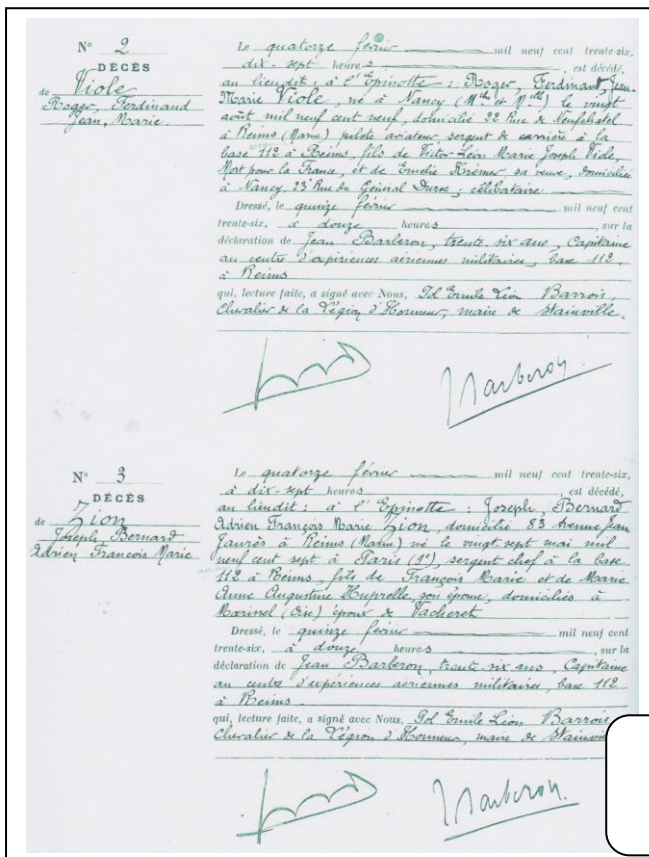 N° 2
DÉCÈS
de Viole
Roger, Ferdinand
Jean, Marie
Le quatorze février mil neuf cent trente-six,
dix-sept heures, est décédé,
au lieudit : à l'Epinotte : Roger Ferdinant, Jean
Marie Viole, né à Nancy (Mthe et Mlle) le vingt
août mil neuf cent neuf, domicilié 22 Rue de Neufchatel
à Reims (Marne) pilote aviateur, sergent de carrière à la
base 112 à Reims, fils de Victor Léon Marie Joseph Viole,
Mort pour la France, et de Emélie Krémer sa veuve, domiciliée
à Nancy, 23 Rue du Général Duroc ; célibataire
Dressé, le quinze février mil neuf cent
trente-six, à douze heures, sur la
déclaration de Jean Barberon, trente six ans, Capitaine
au centre d'expériences aériennes militaires, base 112,
à Reims
qui, lecture faite, a signé avec Nous, Emile Léon Barrois,
Chevalier de la Légion d'Honneur, maire de Stainville.
Barberon
N° 3
DÉCÈS
de Zion
Joseph, Bernard
Adrien François Marie
Le quatorze février mil neuf cent trente-six,
à dix-sept heures, est décédé,
au lieudit : à l'Epinotte : Joseph, Bernard
Adrien François Marie Zion, domicilié 83 Avenue Jean
Jaurès à Reims (Marne) né le vingt sept mai mil
neuf cent sept à Paris, sergent chef à la base
112 à Reims, fils de François Marie et de Marie
Anne Augustine Huprelle, son épouse, domiciliés à
(Oise) époux de Vacheret
Dressé, le quinze février mil neuf cent
trente-six, à douze heures, sur la
déclaration de Jean Barberon, trente-six ans, Capitaine
au centre d'expériences aériennes militaires, base 112
à Reims.
qui, lecture faite, a signé avec Nous, Emile Léon Barrois
Chevalier de la Légion d'Honneur, maire de
Barberon